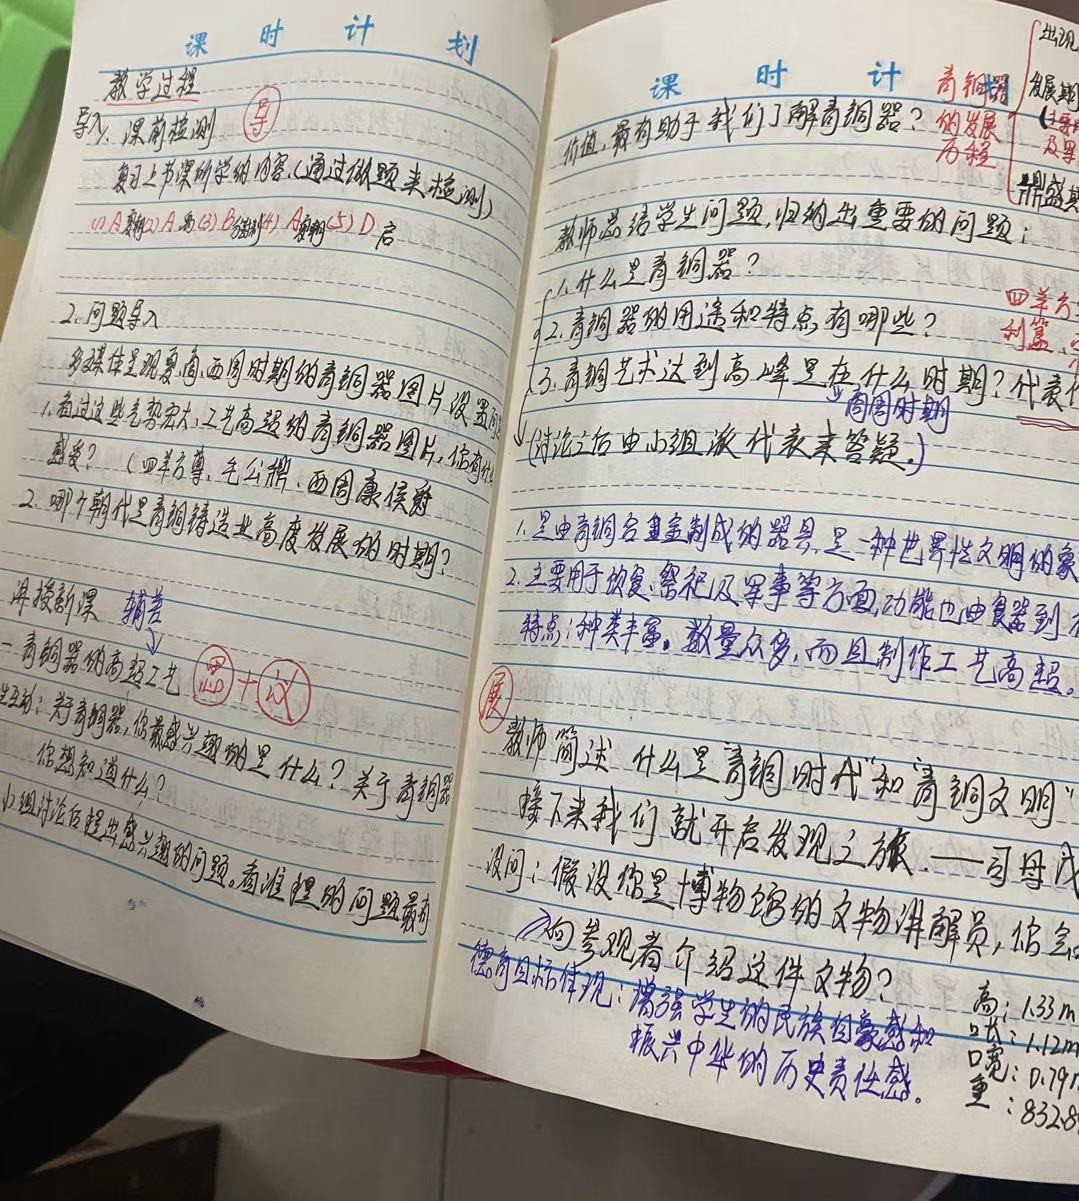 课时计划
教学过程
导入
1. 课前检测 导
复习上节课所学的内容.(通过做题来检测)
(1) A (2) A (3) B (4) A (5) D
2. 问题导入
多媒体呈现夏、商、西周时期的青铜器图片,设置问
1. 看过这些气势宏大、工艺高超的青铜器图片,你有什么
感受? (四羊方尊、毛公鼎、西周康侯
2. 哪个朝代是青铜铸造业高度发展的时期?
讲授新课 辅差
一 青铜器的高超工艺 思+议
生互动:关于青铜器,你最感兴趣的是什么?关于青铜器
你想知道什么?
小组讨论后提出感兴趣的问题。看谁提的问题最有
课时计划
价值,最有助于我们了解青铜器?
青铜器
的发展
历程
出现
发展期
及早
鼎盛其
教师总结学生问题,归纳出重要的问题:
1. 什么是青铜器?
2. 青铜器的用途和特点有哪些?
四羊方
利簋、
3. 青铜艺术达到高峰是在什么时期?代表
商周时期
(讨论之后由小组派代表来答疑。)
1. 是由青铜合金制成的器具,是一种世界性文明的象
2. 主要用于饮食、祭祀及军事等方面,功能也由食器到
特点:种类丰富。数量众多,而且制作工艺高超。
展
教师简述 什么是"青铜时代"和"青铜文明"
接下来我们就开启发现之旅.——司母戊
设问:假设你是博物馆的文物讲解员,你会
向参观者介绍这件文物?
德育目标体现:增强学生的民族自豪感和
振兴中华的历史责任感。
高:1.33m
口长:1.12m
口宽:0.79
重:832.8